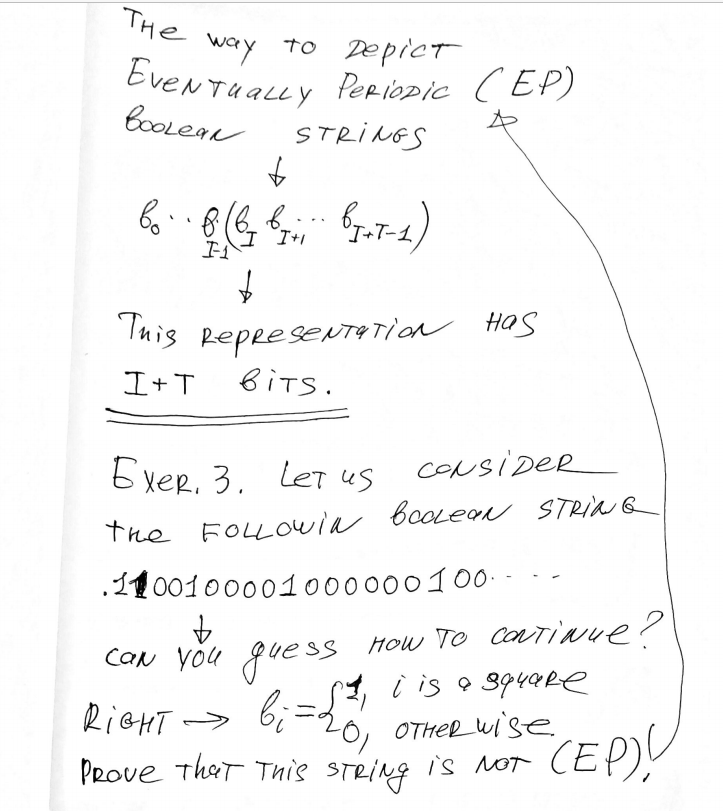 THe way to Depict
EVENTUALLY PERIODIC (EP)
Boolean STRINGS
↓
b₀ ·· b_{I-1} (b_I b_{I+1} ··· b_{I+T-1})
↓
This REPRESENTATION HAS
I+T BITS.
Exer. 3. LeT us CONSIDER
the FOLLOWIN boolean STRING
.1100100001000000100·····
↓
can you guess HOW TO CONTINUE?
RIGHT → b_i = { 1, i is a square
0, OTHERWISE.
PROVE THAT THIS STRING IS NOT (EP)!